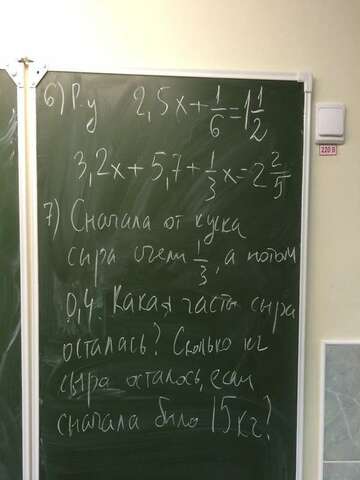 6) Р-у 2,5x + 1/6 = 1 1/2
3,2x + 5,7 + 1/3 x = 2 2/5
7) Сначала от куска
сыра съели 1/3, а потом
0,4. Какая часть сыра
осталась? Сколько кг
сыра осталось, если
сначала было 15 кг?
220 В